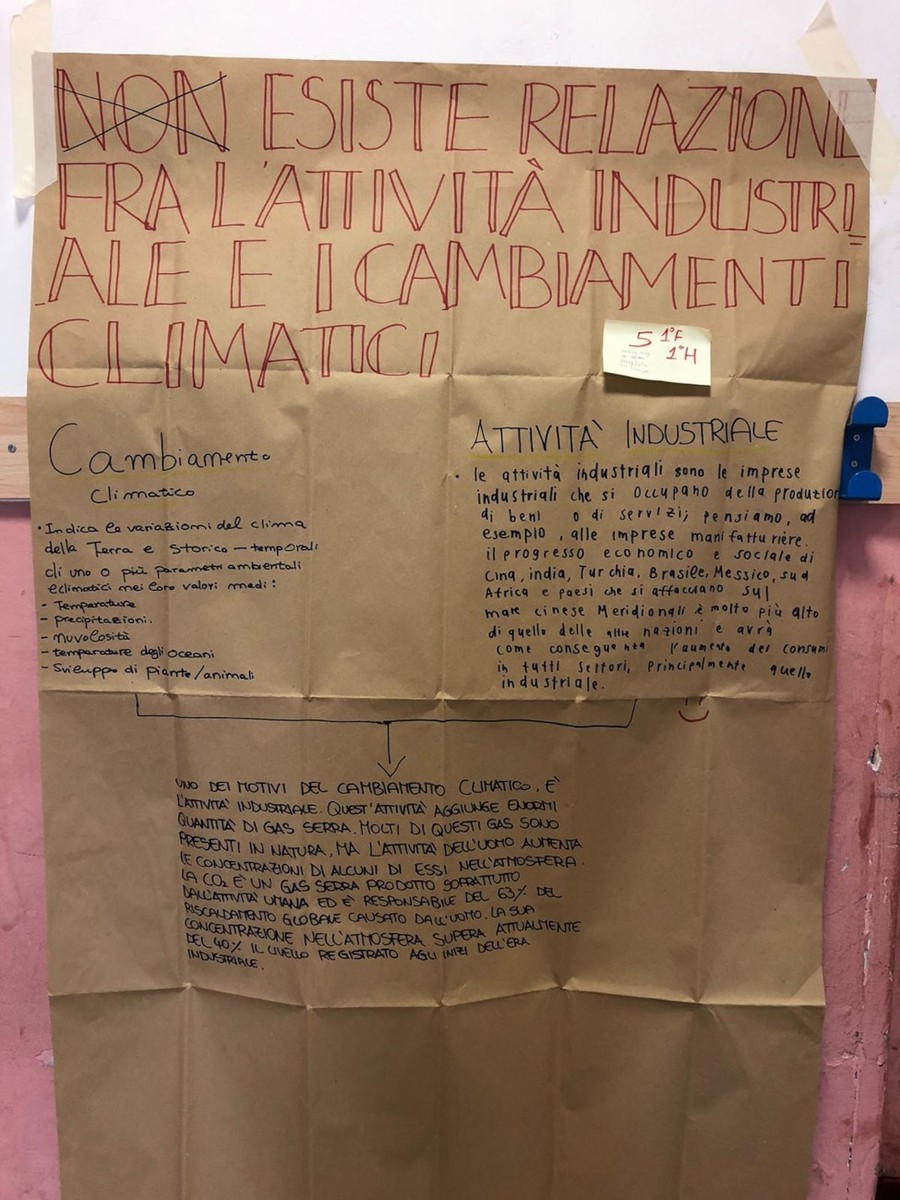 NON ESISTE RELAZIONE
FRA L'ATTIVITÀ INDUSTRI
ALE E I CAMBIAMENTI
CLIMATICI
5 1°F
1°H
Cambiamento
Climatico
• Indica le variazioni del clima
della Terra e storico – temporali
di uno o più parametri ambientali
e climatici nei loro valori medi:
- Temperature
- precipitazioni.
- nuvolosità
- temperature degli oceani
- Sviluppo di piante/animali
ATTIVITÀ INDUSTRIALE
• le attività industriali sono le imprese
industriali che si occupano della produzion
di beni o di servizi; pensiamo, ad
esempio, alle imprese manifatturière.
il progresso economico e sociale di
Cina, india, Turchia, Brasile, Messico, sud
Africa e paesi che si affacciano sul
mare cinese Meridionali è molto più alto
di quello delle altre nazioni e avrà
come conseguenza l'aumento dei consumi
in tutti settori, principalmente quello
industriale.
UNO DEI MOTIVI DEL CAMBIAMENTO CLIMATICO, È
L'ATTIVITÀ INDUSTRIALE. QUEST'ATTIVITÀ AGGIUNGE ENORMI
QUANTITÀ DI GAS SERRA. MOLTI DI QUESTI GAS SONO
PRESENTI IN NATURA, MA L'ATTIVITÀ DELL'UOMO AUMENTA
LE CONCENTRAZIONI DI ALCUNI DI ESSI NELL'ATMOSFERA.
LA CO₂ È UN GAS SERRA PRODOTTO SOPRATTUTTO
DALL'ATTIVITÀ UMANA ED È RESPONSABILE DEL 63% DEL
RISCALDAMENTO GLOBALE CAUSATO DALL'UOMO. LA SUA
CONCENTRAZIONE NELL'ATMOSFERA SUPERA ATTUALMENTE
DEL 40% IL LIVELLO REGISTRATO AGLI INIZI DELL'ERA
INDUSTRIALE.